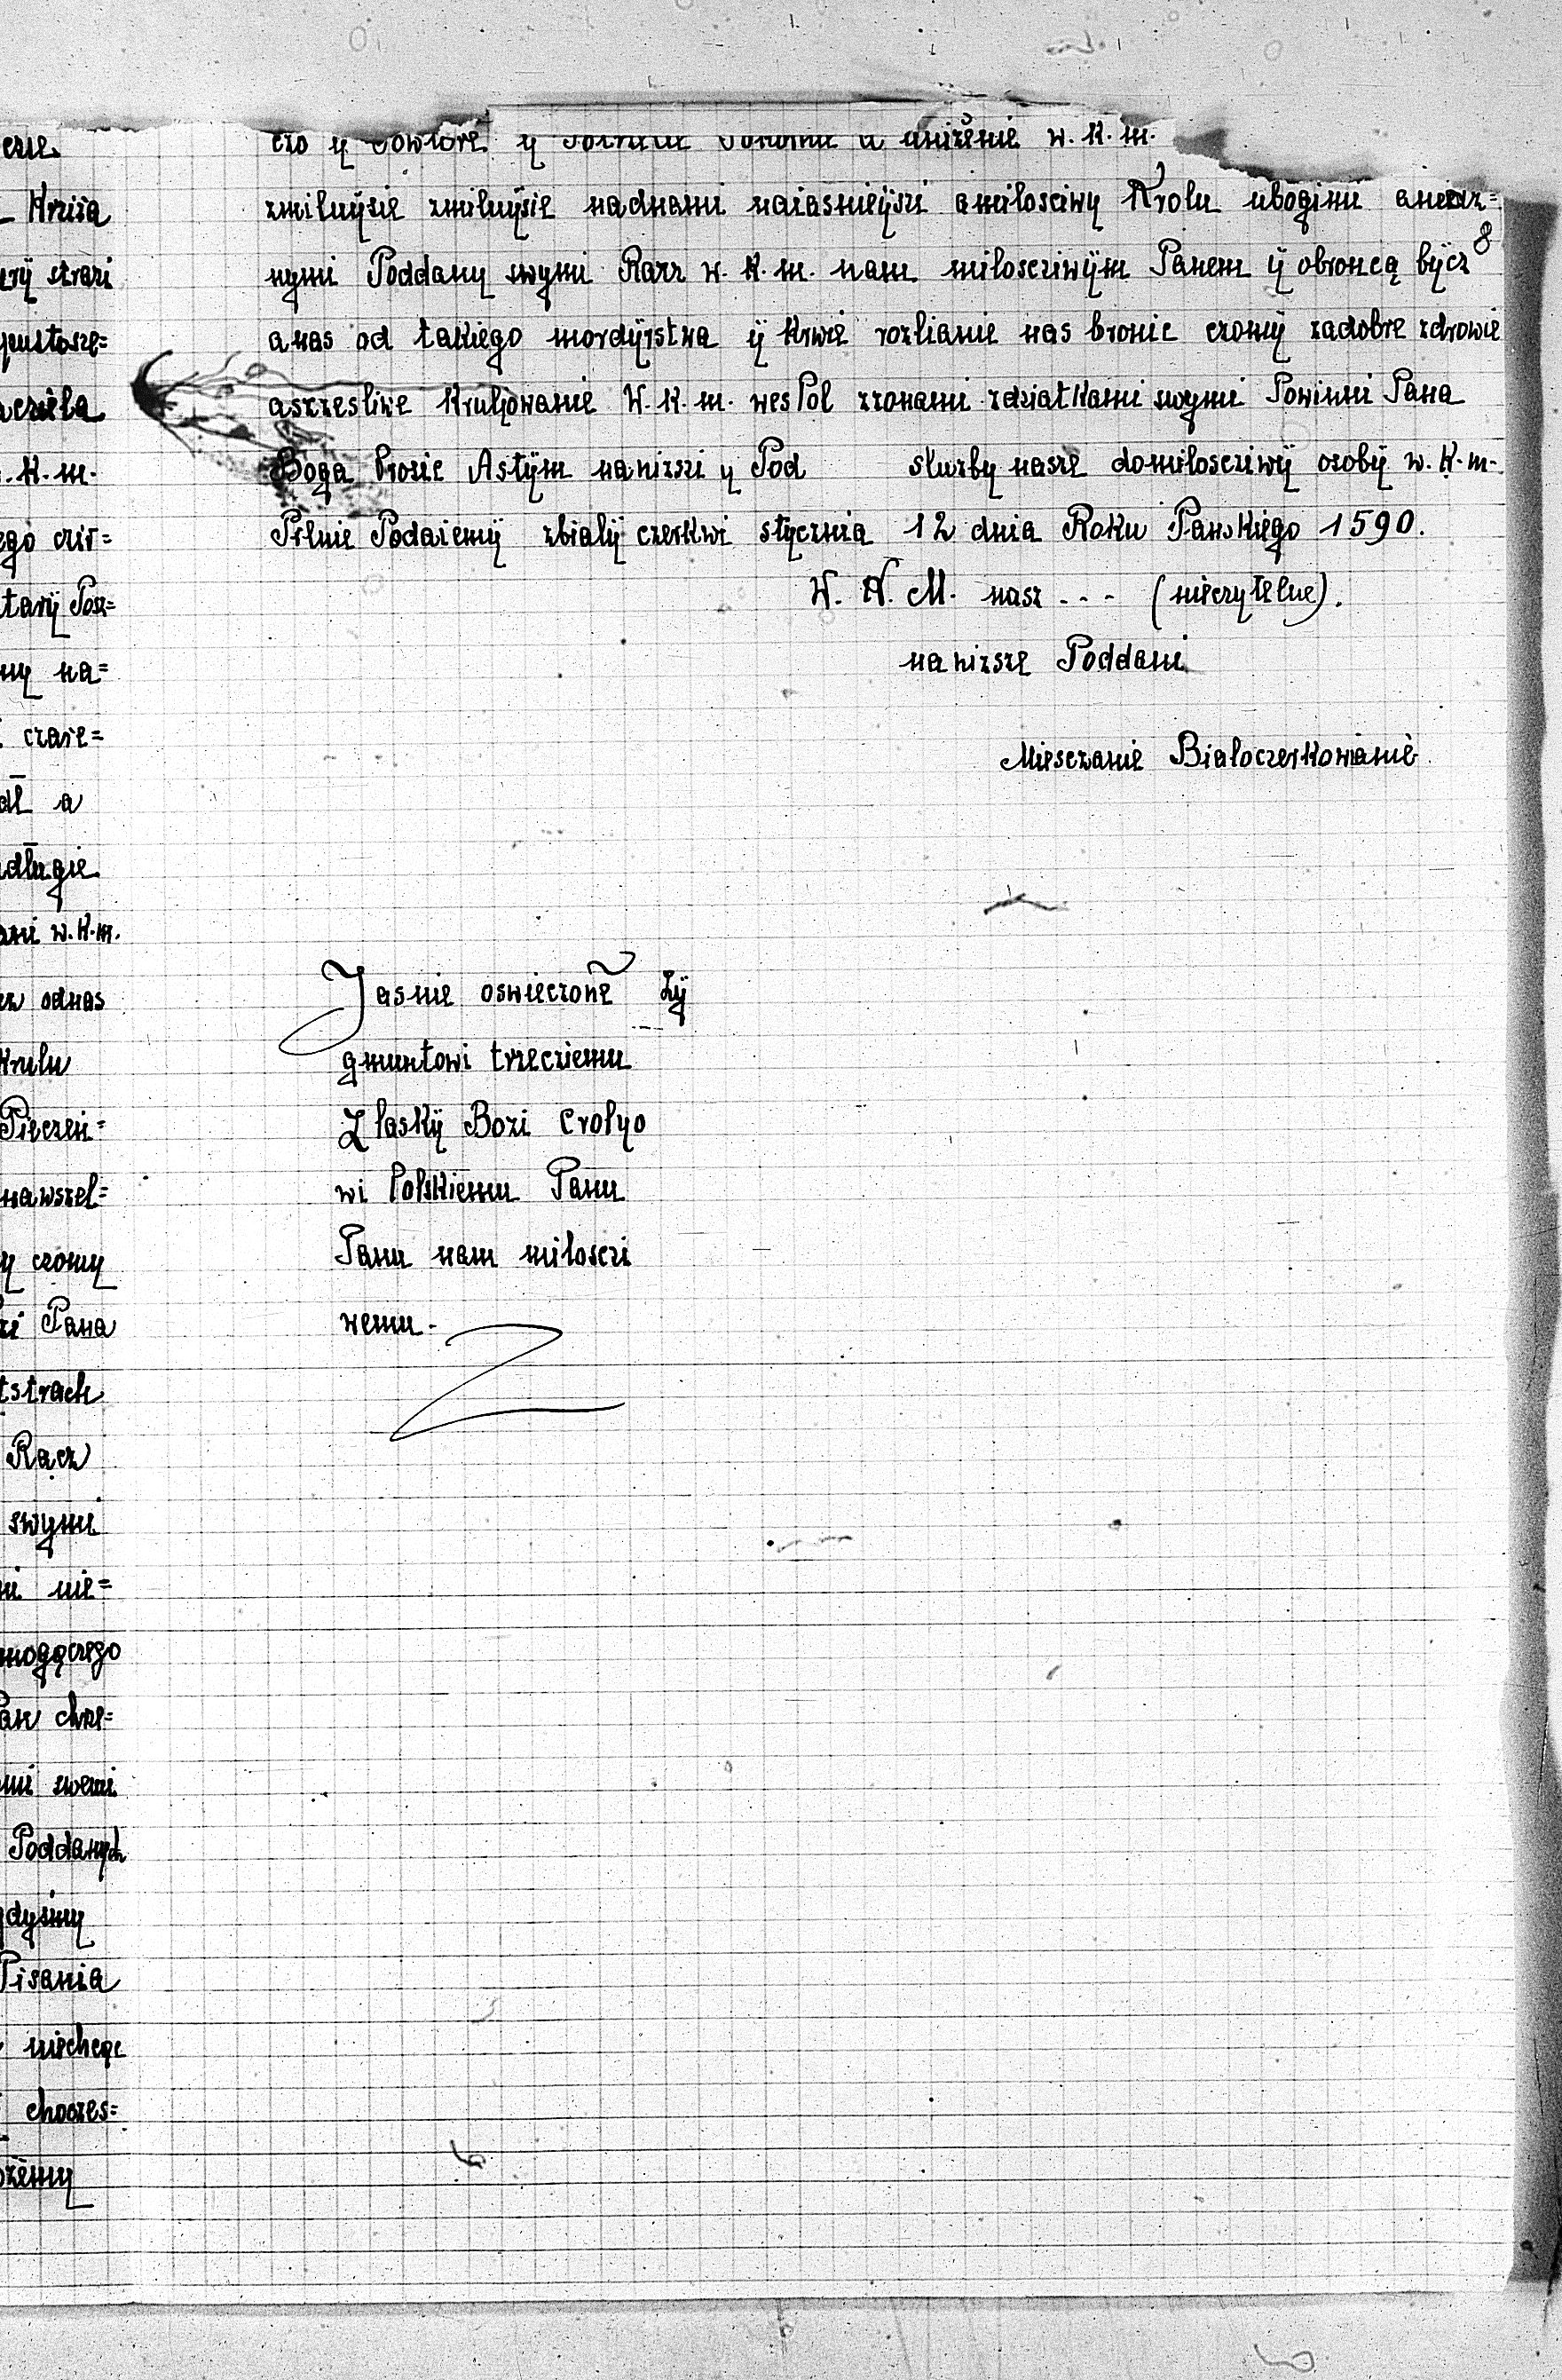 erze
Krzisa
ery strazi
pustosze=
aczela
. K. m.
ego czir=
tarÿ Posz=
my na=
. czase=
dl a
adlugie
ani w. K. m.
odnas
Krulu
Pieczen=
nawszel=
y czomy
Pana
tstrach
Racz
swymi
mi nie=
mogączego
Pan chrze=
mi swemi
Poddanych
gdysmy
Pisania
niechcąc
choczes=
ozemy
czo y powtore y unizenie w. K. m.
zmiluÿsie zmiluÿsie nadnami naiasnieÿszi amilosciwy Krolu ubogimi anędz=
8
nymi Poddany swymi Racz w. K. m. nam milosciwÿm Panem ÿ obroncą bÿcz
anas od takiego mordÿrstwa ÿ krwie rozlianie nas bronic czomÿ zadobre zdrowie
aszczesliwe krulowanie W. K. m. wespol zzonami zdziatkami swymi Powinni Pana
Boga prosic Astÿm nanizszi y Pod sluzby nasze domilosciwÿ osobÿ w. K. m.
Pilnie Podaiemÿ zbialÿ czerkwi stycznia 12 dnia Roku Panskiego 1590.
W. K. M. nasz - - - (nieczytelne).
nanizsze Poddani
Miesczanie Bialoczerkowianie
Jasnie oswieczone Zÿ
gmuntowi trzecziemu
Z laskÿ Bozi Crolyo
wi Polskiemu Panu
Panu nam miloszi
wemu.